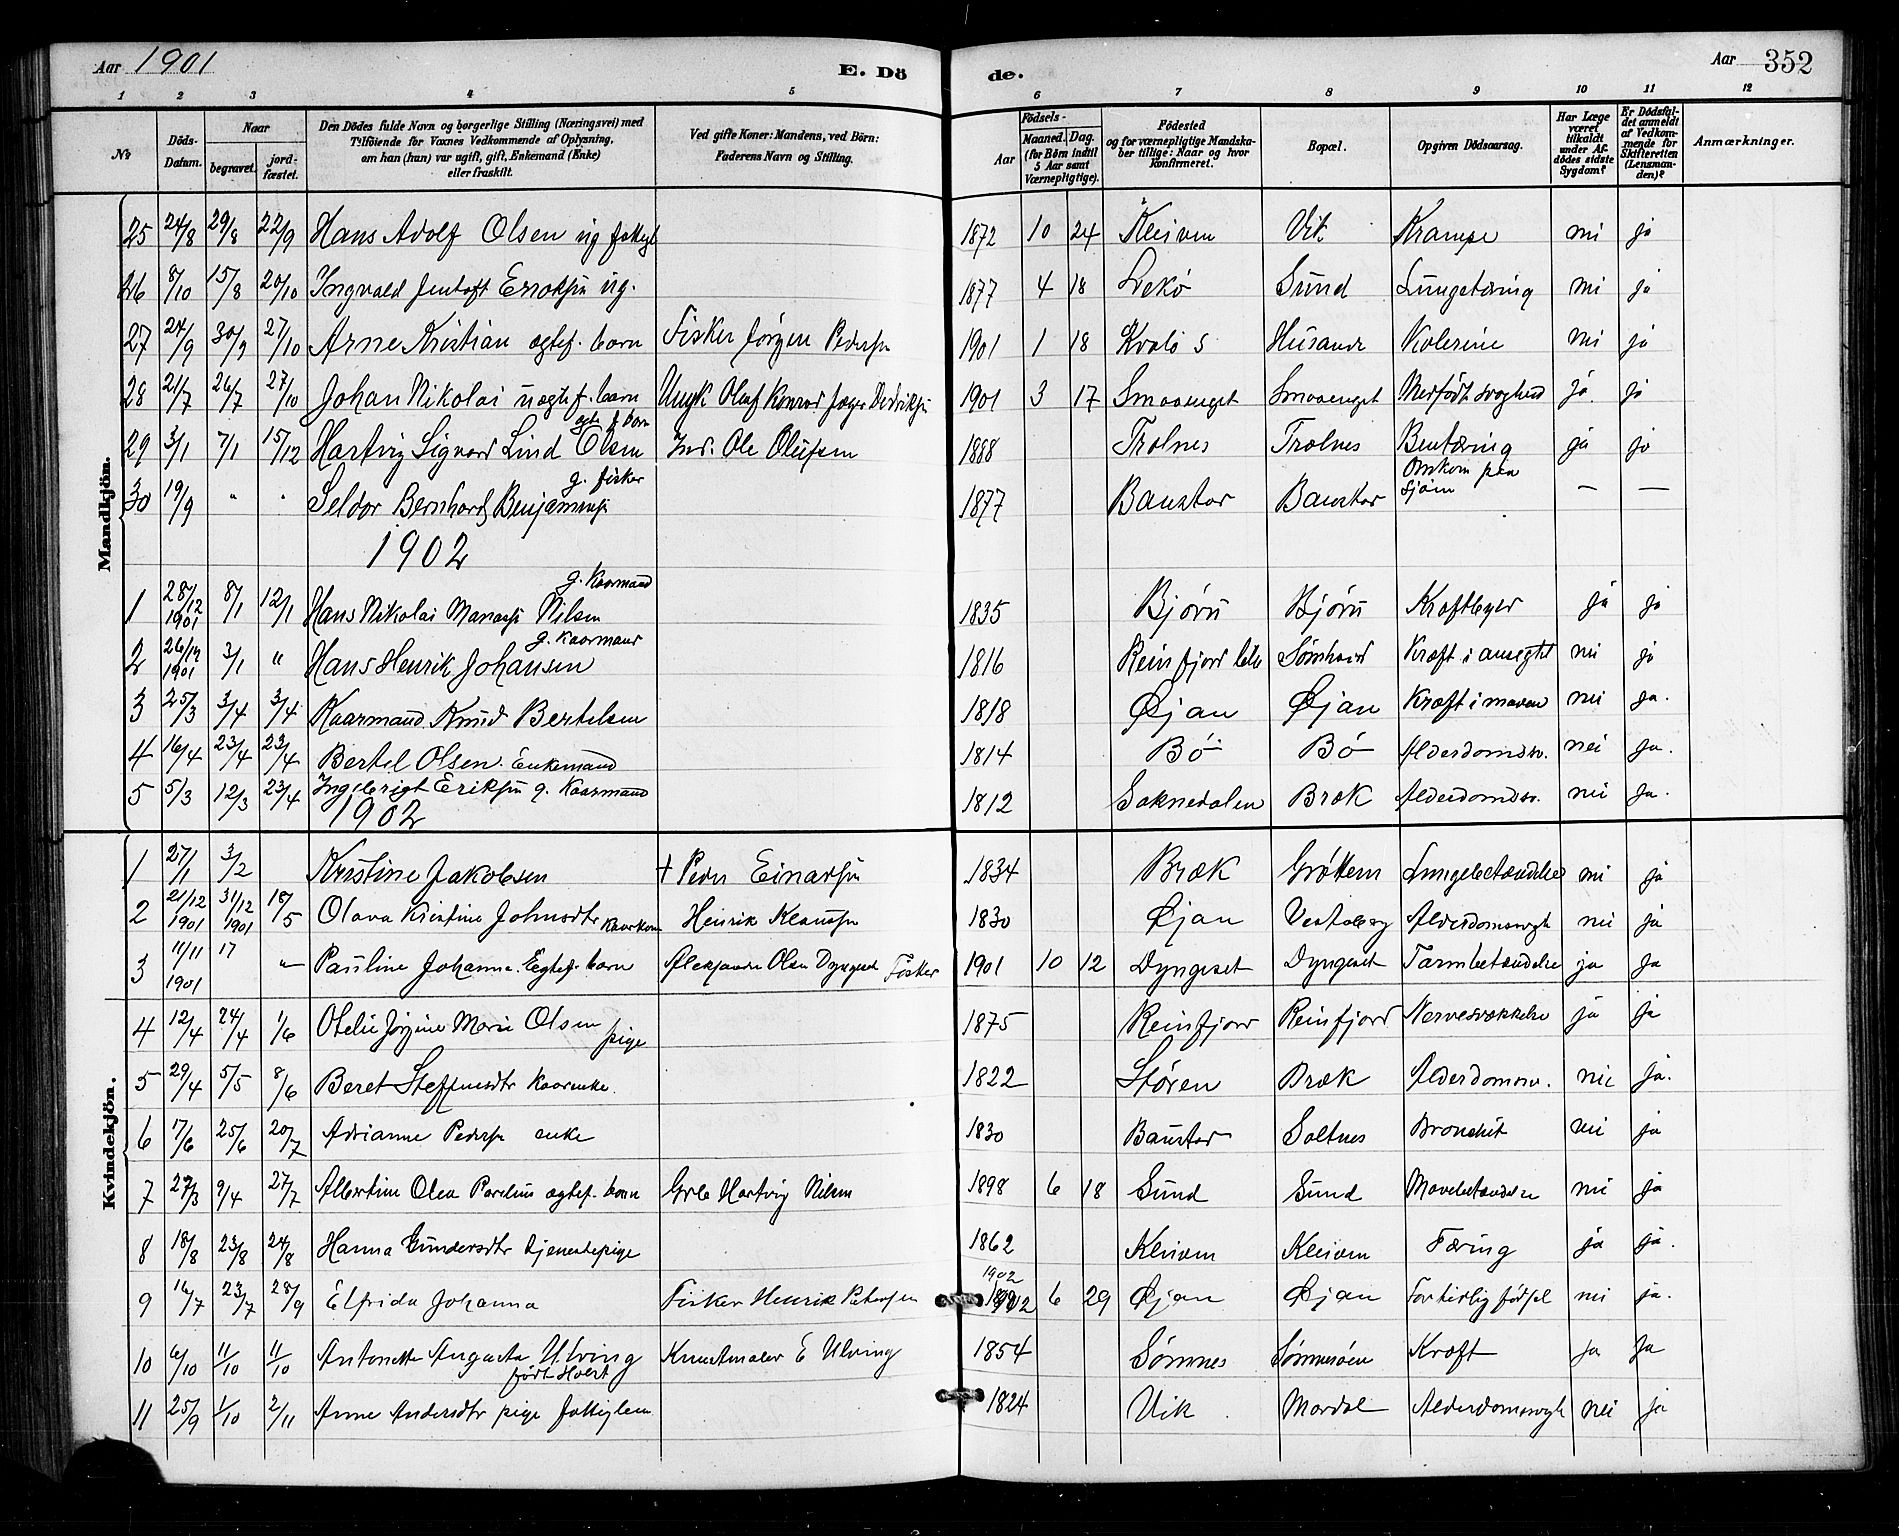 Aar 1901 E. Dö de. Aar 352
1 2 3 4 5 6 7 8 9 10 11 12
No Döds-Datum. Naar begravet. jordfæstet. Den Dödes fulde Navn og borgerlige Stilling (Næringsvei) med Tilföiende for Voxnes Vedkommende af Oplysning, om han (hun) var ugift, gift, Enkemand (Enke) eller fraskilt. Ved gifte Koner: Mandens, ved Börn: Faderens Navn og Stilling. Aar Födsels- Maaned. Dag. (for Börn indtil 5 Aar samt Værnepligtige). Födested og for værnepligtige Mandskaber tillige: Naar og hvor konfirmeret. Bopæl. Opgiven Dödsaarsag. Har Læge været tilkaldt under Afdödes sidste Sygdom? Er Dödsfaldet anmeldt af Vedkommende for Skifteretten (Lensmanden)? Anmærkninger.
Mandkjön.
25 24/8 29/8 22/9 Hans Adolf Olsen ug 1872 10 24 Kleiven Vik Krampe nei ja
26 8/10 15/8 20/10 Ingvald Jentoft ug. 1877 4 18 Lekø Sund Lungetæring nei ja
27 24/9 30/9 27/10 Arne Kristian ægtef. barn Fisker Jörgen Pedersen 1901 1 18 Kvalö S Husande Kolerine nei ja
28 21/7 26/7 27/10 Johan Nikolai uægtef. barn Ungk Olaf Konrad 1901 3 17 Smaavenget Smaavenget Medfödt svaghed ja. ja
29 3/1 7/1 15/12 Hartvig Sigvard Lind Olsen ægtef barn Ind. Ole Olufsen 1888 Trælnes Trælnes Bentæring ja ja
30 19/9 " " Seldor Bernhard Benjaminsen g. fisker 1877 Baustad Baustad Omkom paa Sjöen — —
1902
1 28/12 1901 8/1 12/1 Hans Nikolai Nilsen g. Kaarmand 1835 Bjørn Bjørn Kræftbyld ja ja
2 26/12 1901 3/1 " Hans Henrik Johansen g. Kaarmand 1816 Reinfjord Sømhovd Kræft i ansigtet nei ja
3 25/3 3/4 3/4 Kaarmand Knud Bertelsen 1818 Øjan Øjan Kræft i maven nei ja.
4 16/4 23/4 23/4 Bertel Olsen. Enkemand 1814 Bö Bö Alderdomssv. nei ja.
5 5/3 12/3 23/4 Ingebrigt Eriksen g. Kaarmand 1812 Soknedalen Bræk Alderdomssv. nei ja.
1902
Kvindekjön.
1 27/1 3/2 Kristine Jakobsen + Peder Einarsen 1834 Bræk Grøttem Lungebetændelse nei ja
2 21/12 1901 31/12 1901 18/5 Olava Kristine Johnsdtr Kaarkone Henrik Klausen 1830 Øjan Vestaberg Alderdomssvagh nei ja
3 11/11 1901 17 " Pauline Johanna. Egtef. barn Aleksander Olsen Dyngeset Fisker 1901 10 12 Dyngeset Dyngeset Tarmbetændelse ja ja
4 12/4 24/4 1/6 Otelie Jörgine Marie Olsen pige 1875 Reinfjord Reinfjord Nervesvækkelse ja ja
5 29/4 5/5 8/6 Beret Steffensdtr Kaarenke. 1822 Støren Bræk Alderdomssv. nei ja.
6 7/6 25/6 20/7 Adrianne Pedersen enke 1830 Baustad Saltnes Bronchit nei ja
7 27/3 9/4 27/7 Albertine Olea Parelius ægtef. barn Grb Hartvig Nilsen 1898 6 18 Sund Sund Mavebetændelse nei ja
8 18/8 23/8 24/8 Hanna Gundersdtr tjenestepige 1862 Kleiven Kleiven Tæring ja ja.
9 16/7 23/7 28/9 Elfrida Johanna Fisker Henrik Petersen 1902 6 29 Øjan Øjan For tidlig födsel nei ja.
10 6/10 11/10 11/10 Antonette Augusta Ulving född Holst Kunstmaler E Ulving 1854 Sømnes Sømnesøen Kræft ja ja
11 25/9 1/10 2/11 Anne Andersdtr pige fattiglem 1824 Vik Mardal Alderdomssvagh nei ja